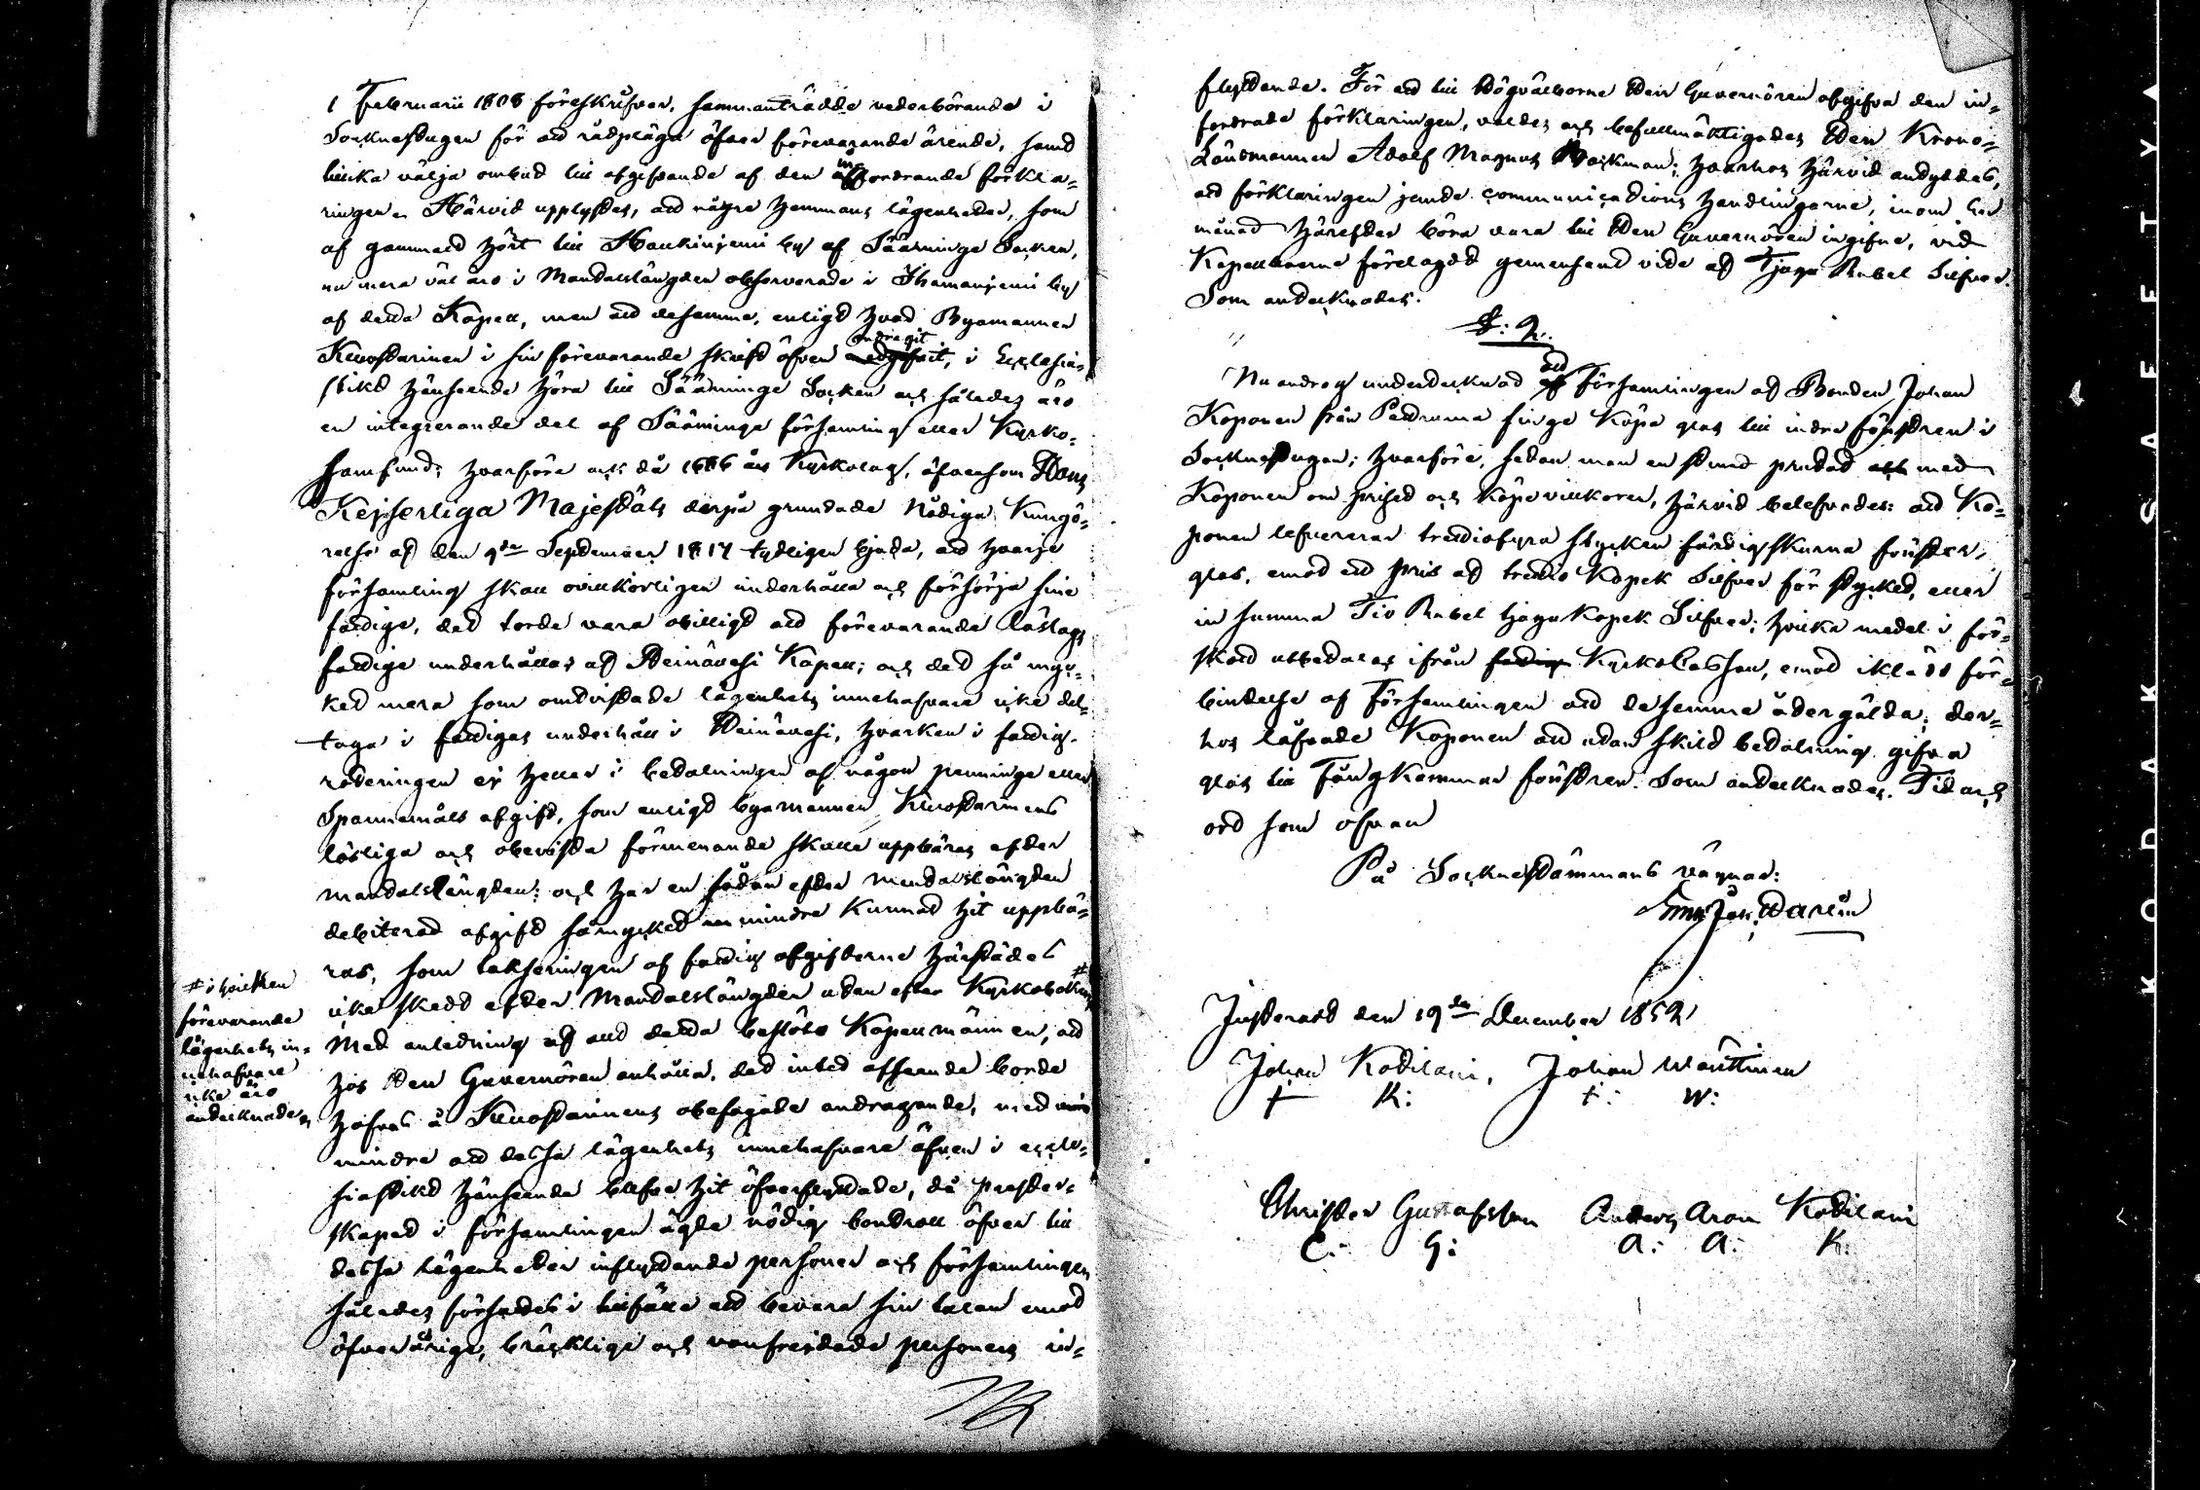 1 Februarii 1808 föreskrifver, sammanträdde vederbörande i
Socknestugan för att rådpläga öfver förevarande ärende, samt
tillika välja ombud till afgifvande af den infordrande förkla-
ringen. Härvid upplystes, att några hemmans lägenheter, som
af gammalt hört till Haukiniemi by af Sääminge Socken,
nu mera väl äro i Mantalslängden observerade i Ihamaniemi by
af detta Kapell, men att desamma, enligt hvad Byamannen
Kuosmarinen i sin förevarande skrift äfven andragit, i Ecclesia-
stikt hänseende höra till Sääminge Socken och således äro
en integrerande del af Sääminge församling eller Kyrko-
samfund; hvarföre och då 1686 års Kyrkolag, äfvensom Hans
Kejserliga Majestäts derpå grundade Nådiga Kungö-
relse af den 9de September 1817 tydligen bjuda, att hvarje
församling skall ovillkorligen underhålla och försörja sine
fattige, det torde vara obilligt att förevarande
fattige underhållas af Heinävesi Kapell; och det så myc-
ket mera som omtvistade lägenhets innehafvare icke del-
taga i fattigas underhåll i Heinävesi, hvarken i fattig-
roteringen ej heller i betalningen af någon penninge eller
Spannemåls afgift, som enligt byamannen
lösliga och obevista förmenande skulle uppbäras efter
mantalslängden; och har en sådan efter mantalslängden
debiterad afgift såmycket mindre kunnat hit uppbä-
ras, som taxeringen af fattig afgifterne härstädes
icke skedd efter Mantalslängden utan efter Kyrkoboken #
# i hvilken
förevarande
lägenhets in-
nehafvare
icke äro
antecknade
Med anledning af allt detta beslöto Kapellmännen, att
hos Herr Guvernören anhålla, det intet afseende borde
hafvas å obefogade andragande, med
mindre att dessa lägenhets innehafvare äfven i eccle-
siastikt hänseende blefve hit öfverflyttade, då prester-
skapet i församlingen ägde nödig controll öfver till
dessa lägenheter inflyttande personer och församlingen
således försattes i tillfälle att bevara sin talan emot
öfveråriga, bräcklige och vanfrejdade personers in-
flyttande. För att till Högvälborne Herr Guvernören afgifva den in-
fordrade förklaringen, valdes och befullmäktigades Herr Krono-
Länsmannen Adolf Magnus Backman; hvarhos härvid antyddes,
att förklaringen jemte communications handlingarne, inom en
månad härefter böra vara till Herr Guvernören ingifne, vid
Kapellboerne förelagdt gemensamt vite af Tjugu Rubel Silfver.
Som antecknades.
§: 2.
Nu androg undertecknad att Församlingen af Bonden Johan
Koponen från Petruma finge köpa glas till indre fönstren i
Socknestugan; hvarföre, sedan man en stund prutat med
Koponen om priset och köpevillkoren, härvid belefvades: att Ko-
ponen lefvererar trettiofyra stycken färdigskurna fönster-
glas, emot ett pris af trettio Kopek Silfver för stycket, eller
in summa Tio Rubel tjugu kopek Silfver; hvilka medel i för-
skott utbetalas ifrån Kyrkocassan, emot iklädd för-
bindelse af Församlingen att desamma återgälda; der-
hos låfvade Koponen att utan skild betalning gifva
glas till Fångkammar fönstren. Som antecknades. Tid och
ort som ofvan
På Sockenstämmans vägnar:
Justerat den 19de December 1852
Johan Kotilain, Johan Wänttinen
+ K: +: W:
Christer Gustafsson Anders Aron Kotilain
C: G: A: A: K: